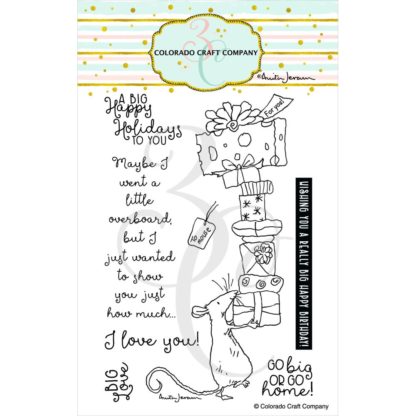 COLORADO CRAFT COMPANY
©Anita Jeram
A BIG
Happy
Holidays
TO YOU
For you!
Maybe I
went a
little
overboard,
but I
just wanted
to show
you just
how much...
To
mouse
WISHING YOU A REALLY BIG HAPPY BIRTHDAY!
I love you!
BIG
love
GO big
OR GO
home!
© Colorado Craft Company